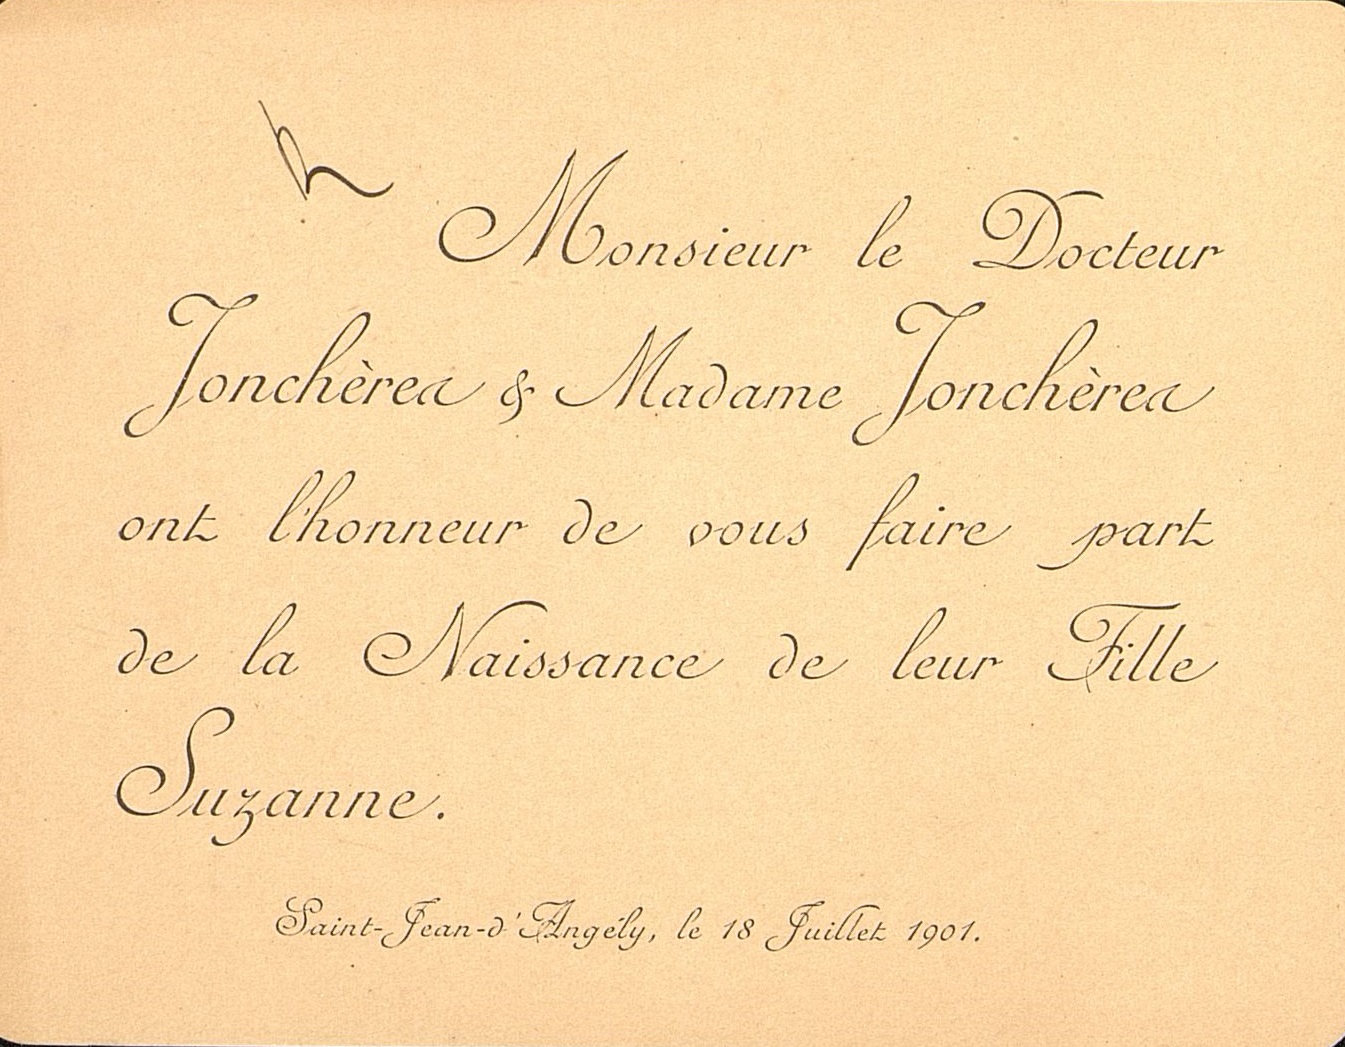 Monsieur le Docteur
Jonchères & Madame Jonchères
ont l'honneur de vous faire part
de la Naissance de leur Fille
Suzanne.
Saint-Jean-d'Angély, le 18 Juillet 1901.